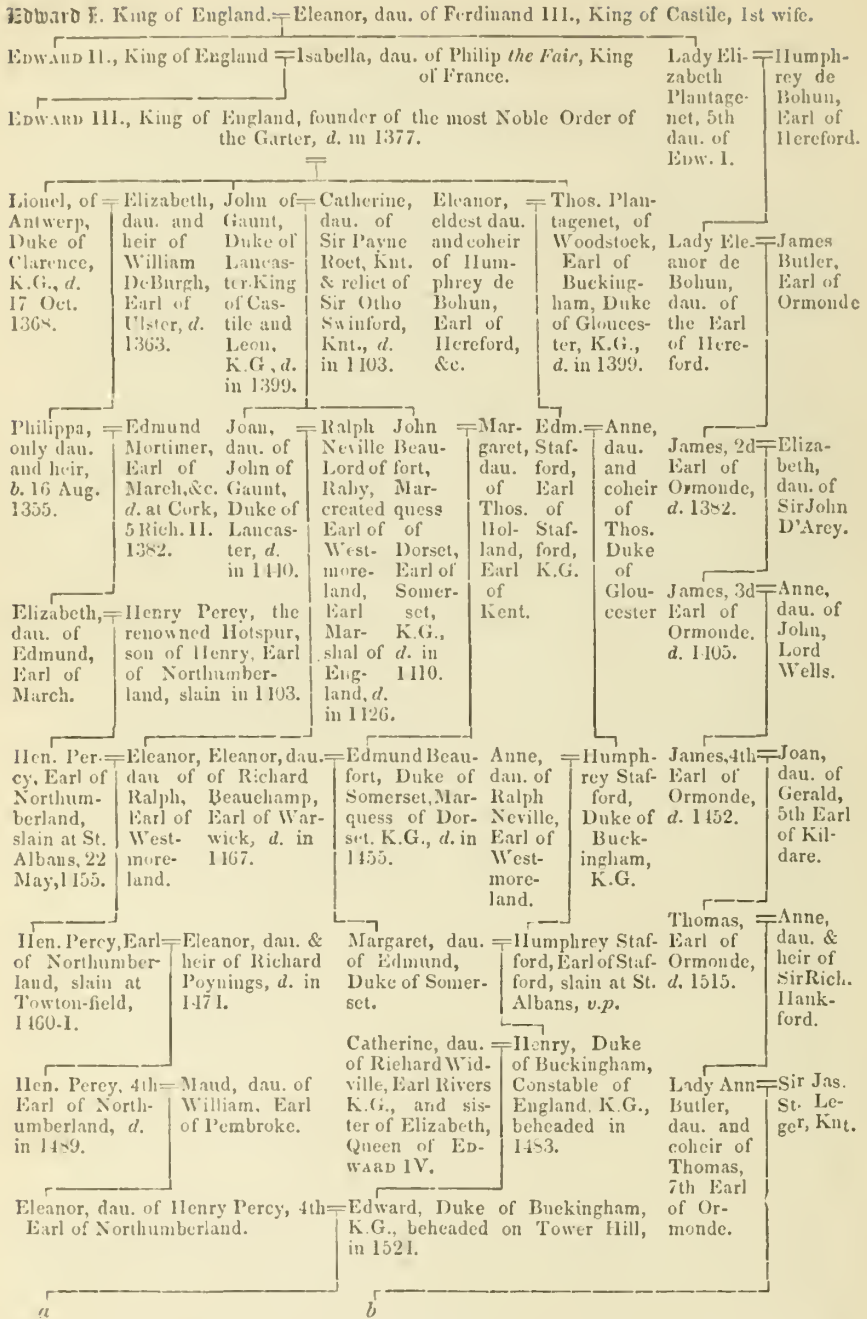 Edward I. King of England.=Eleanor, dau. of Ferdinand III., King of Castile, 1st wife.
EDWARD II., King of England
=Isabella, dau. of Philip the Fair, King
of France.
Lady Eli-
zabeth
Plantage-
net, 5th
dau. of
Edw. I.
=Humph-
rey de
Bohun,
Earl of
Hereford.
EDWARD III., King of England, founder of the most Noble Order of
the Garter, d. in 1377.
Lionel, of
Antwerp,
Duke of
Clarence,
K.G., d.
17 Oct.
1368.
=Elizabeth,
dau. and
heir of
William
DeBurgh,
Earl of
Ulster, d.
1363.
John of
Gaunt,
Duke of
Lancas-
ter, King
of Cas-
tile and
Leon,
K.G., d.
in 1399.
=Catherine,
dau. of
Sir Payne
Roet, Knt.
& relict of
Sir Otho
Swinford,
Knt., d.
in 1403.
Eleanor,
eldest dau.
and coheir
of Hum-
phrey de
Bohun,
Earl of
Hereford,
&c.
=Thos. Plan-
tagenet, of
Woodstock,
Earl of
Bucking-
ham, Duke
of Glouces-
ter, K.G.,
d. in 1399.
Lady Ele-
anor de
Bohun,
dau. of
the Earl
of Here-
ford.
=James
Butler,
Earl of
Ormonde
Philippa,
only dau.
and heir,
b. 16 Aug.
1355.
=Edmund
Mortimer,
Earl of
March, &c.
d. at Cork,
5 Rich. II.
1382.
Joan,
dau. of
John of
Gaunt,
Duke of
Lancas-
ter, d.
in 1440.
=Ralph
Neville
Lord of
Raby,
created
Earl of
West-
more-
land,
Earl
Mar-
shal of
Eng-
land, d.
in 1426.
John
Beau-
fort,
Mar-
quess
of
Dorset,
Earl of
Somer-
set,
K.G.,
d. in
1410.
=Mar-
garet,
dau.
of
Thos.
Hol-
land,
Earl
of
Kent.
Edm.
Staf-
ford,
Earl
of
Staf-
ford,
K.G.
=Anne,
dau.
and
coheir
of
Thos.
Duke
of
Glou-
cester
James, 2d
Earl of
Ormonde,
d. 1382.
=Eliza-
beth,
dau. of
Sir John
D'Arcy.
Elizabeth,
dau. of
Edmund,
Earl of
March.
=Henry Percy, the
renowned Hotspur,
son of Henry, Earl
of Northumber-
land, slain in 1403.
James, 3d
Earl of
Ormonde,
d. 1405.
=Anne,
dau. of
John,
Lord
Wells.
Hen. Per-
cy, Earl of
Northum-
berland,
slain at St.
Albans, 22
May, 1455.
=Eleanor,
dau of
Ralph,
Earl of
West-
more-
land.
Eleanor, dau.
of Richard
Beauchamp,
Earl of War-
wick, d. in
1467.
=Edmund Beau-
fort, Duke of
Somerset, Mar-
quess of Dor-
set. K.G., d. in
1455.
Anne,
dau. of
Ralph
Neville,
Earl of
West-
more-
land.
=Humph-
rey Staf-
ford,
Duke of
Buck-
ingham,
K.G.
James, 4th
Earl of
Ormonde,
d. 1452.
=Joan,
dau. of
Gerald,
5th Earl
of Kil-
dare.
Hen. Percy, Earl
of Northumber-
land, slain at
Towton-field,
1460-1.
=Eleanor, dau. &
heir of Richard
Poynings, d. in
1471.
Margaret, dau.
of Edmund,
Duke of Somer-
set.
=Humphrey Staf-
ford, Earl of Staf-
ford, slain at St.
Albans, v.p.
Thomas,
Earl of
Ormonde,
d. 1515.
=Anne,
dau. &
heir of
Sir Rich.
Hank-
ford.
Hen. Percy, 4th
Earl of North-
umberland, d.
in 1489.
=Maud, dau. of
William, Earl
of Pembroke.
Catherine, dau.
of Richard Wid-
ville, Earl Rivers
K.G., and sis-
ter of Elizabeth,
Queen of ED-
WARD IV.
=Henry, Duke
of Buckingham,
Constable of
England, K.G.,
beheaded in
1483.
Lady Ann
Butler,
dau. and
coheir of
Thomas,
7th Earl
of Or-
monde.
=Sir Jas.
St. Le-
ger, Knt.
Eleanor, dau. of Henry Percy, 4th
Earl of Northumberland.
=Edward, Duke of Buckingham,
K.G., beheaded on Tower Hill,
in 1521.
a
b